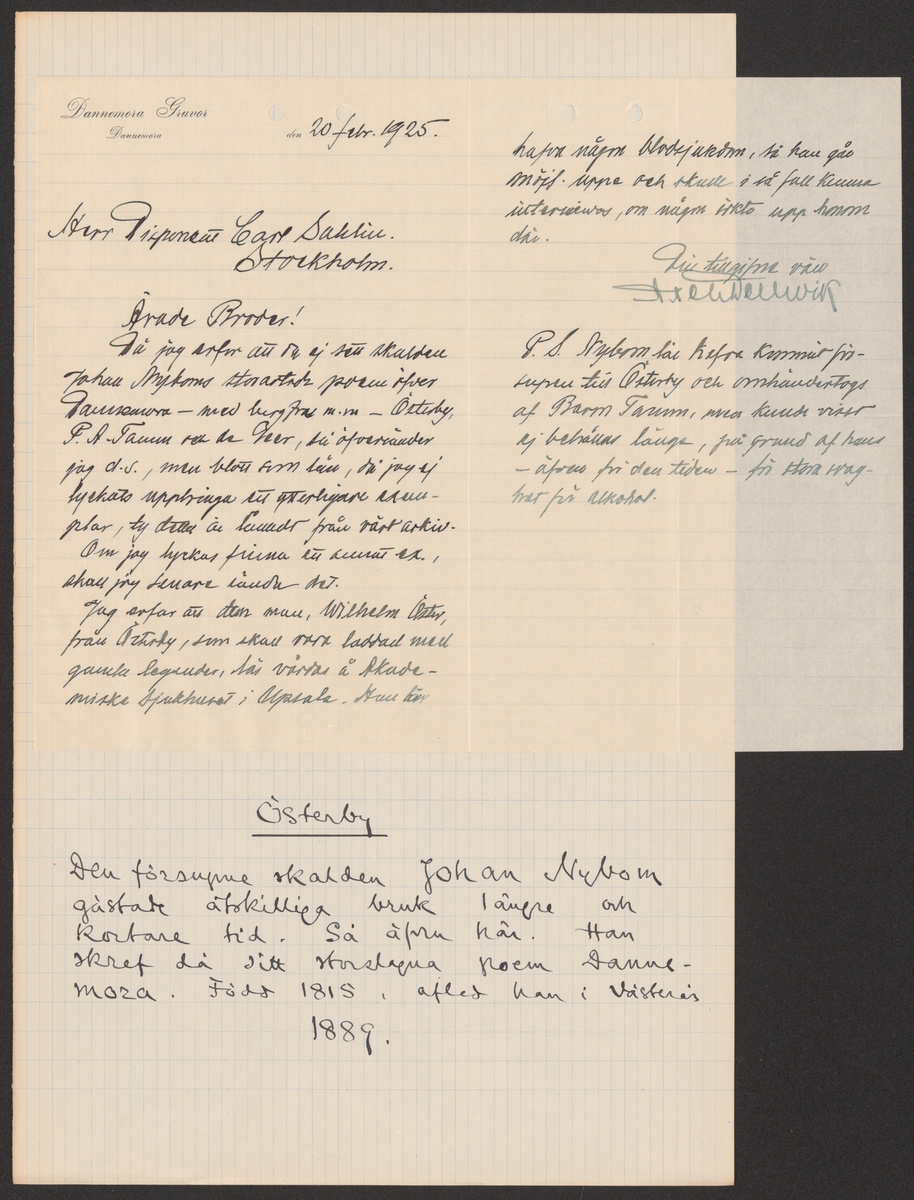 Dannemora Gruvor
Dannemora
den 20 febr. 1925.
Herr Disponent Carl Sahlin.
Stockholm.
Ärade Broder!
Då jag erfor att du ej sett skalden
Johan Nyboms storartade poem öfver
Dannemora – med bergfrun m.m – Österby,
P. A. Tamm och de Geer, så öfversänder
jag d.s., men blott som lån, då jag ej
lyckats uppbringa ett ytterligare exem-
plar, ty detta är lånadt från vårt arkiv.
Om jag lyckas finna ett annat ex.,
skall jag senare sända det.
Jag erfar att den man, Wilhelm Öster,
från Österby, som skall vara laddad med
gamla legender, lär vårdas å Akade-
miska Sjukhuset i Upsala. Han lär
hafva någon blodsjukdom, så han går
möjl. uppe och skulle i så fall kunna
interviewas, om någon sökte upp honom
där.
Din tillgifne vän
Axel Wellwik
P. S. Nybom lär hafva kommit för-
supen till Österby och omhändertogs
af Baron Tamm, men kunde visst
ej behållas länge, på grund af hans
– äfven för den tiden – för stora svag-
het för alkohol.
Österby
Den försupne skalden Johan Nybom
gästade åtskilliga bruk längre och
kortare tid. Så äfven här. Han
skref då sitt storslagna poem Danne-
mora. Född 1815, afled han i Västerås
1889.